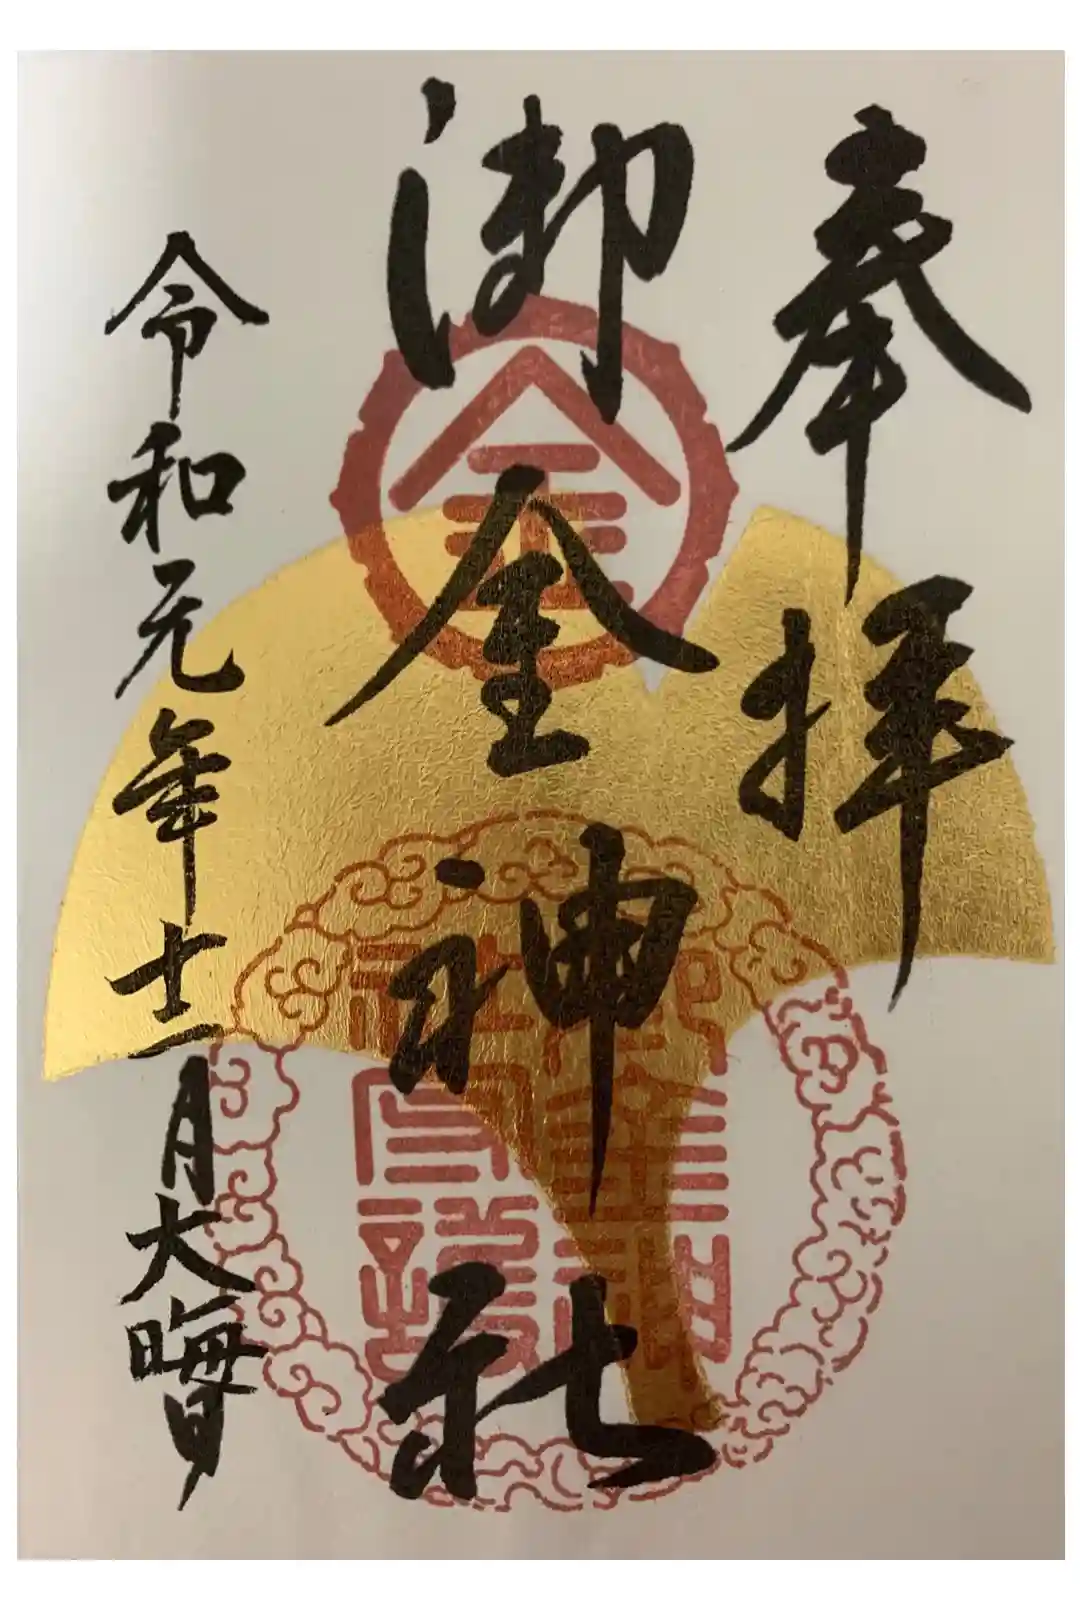 奉拝
御金神社
令和元年十二月大晦日
金